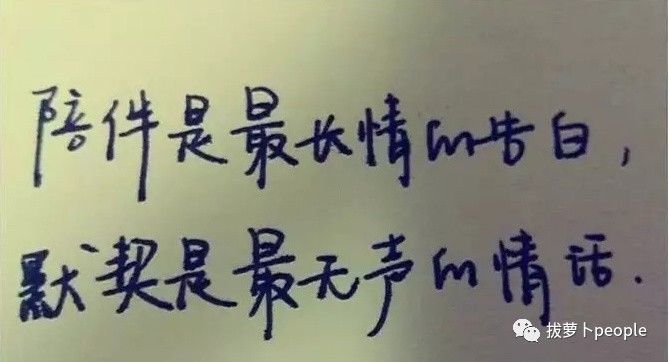 陪件是最长情的告白,
默契是最无声的情话.
拔萝卜people